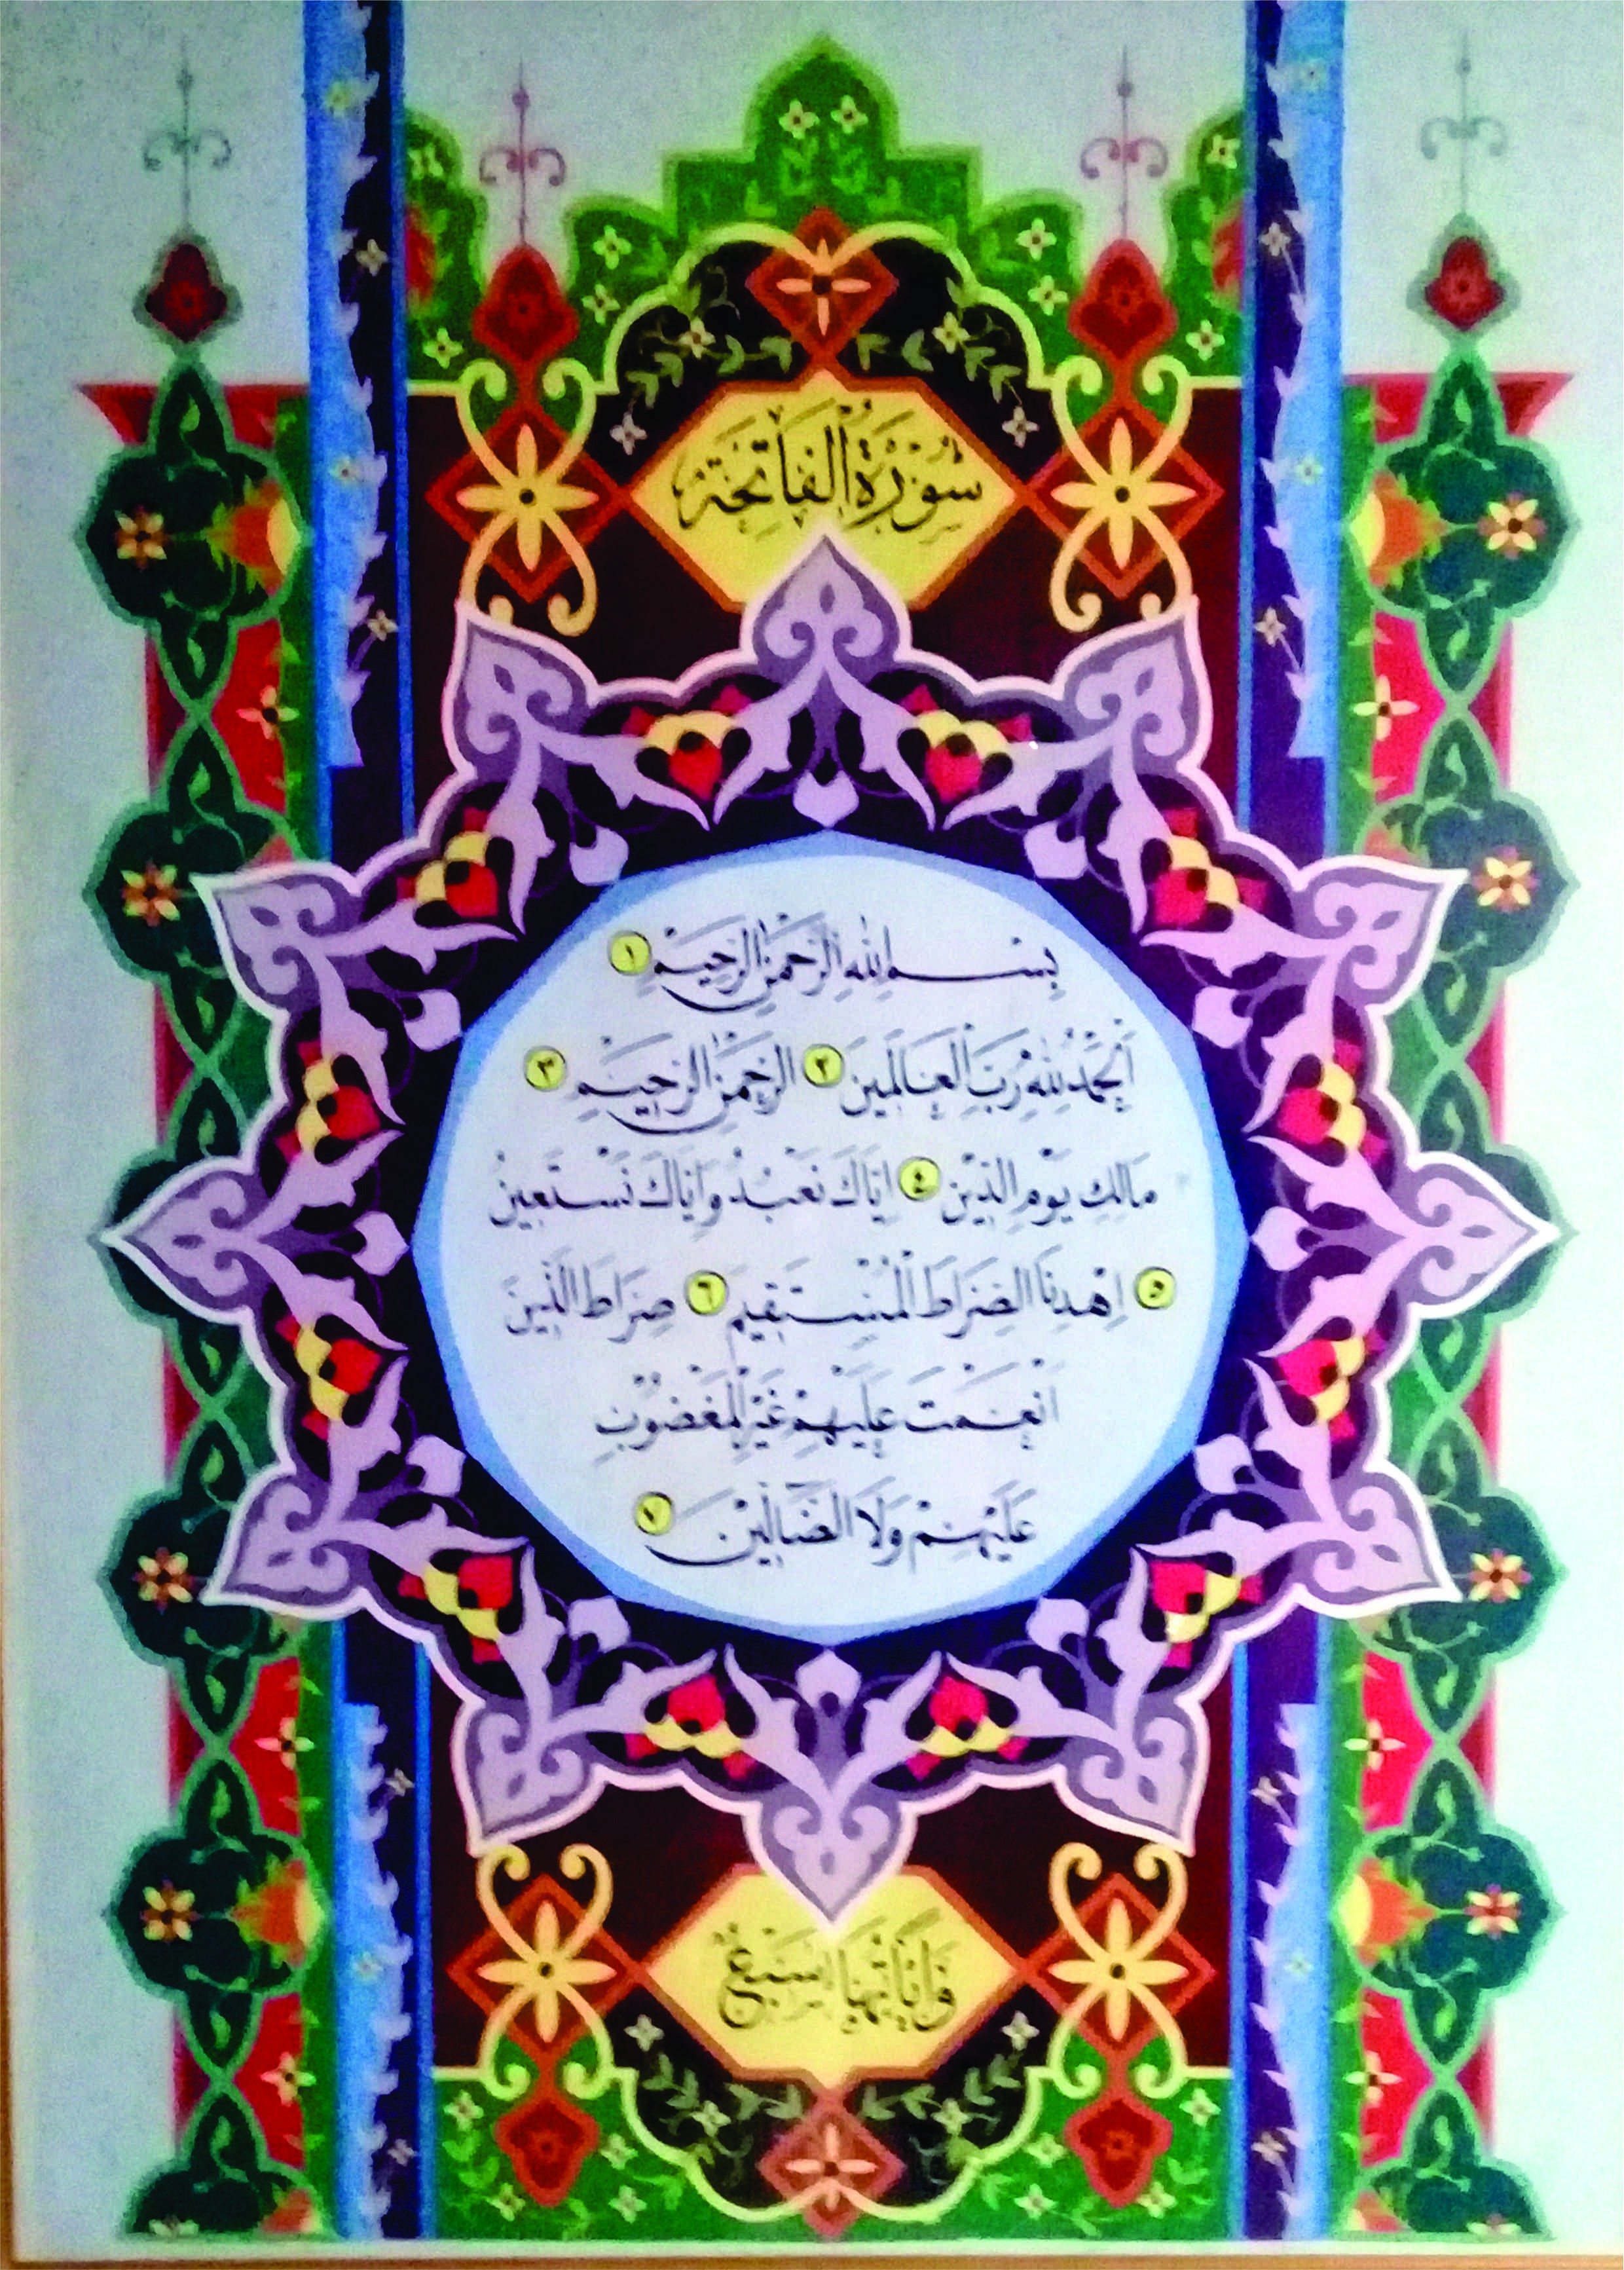 سُوْرَةُ الْفَاتِحَةِ
بِسْمِ اللهِ الرَّحْمٰنِ الرَّحِيْمِ ١
اَلْحَمْدُ لِلهِ رَبِّ الْعَالَمِيْنَ ٢ الرَّحْمٰنِ الرَّحِيْمِ ٣
مَالِكِ يَوْمِ الدِّيْنِ ٤ اِيَّاكَ نَعْبُدُ وَاِيَّاكَ نَسْتَعِيْنُ
٥ اِهْدِنَا الصِّرَاطَ الْمُسْتَقِيْمَ ٦ صِرَاطَ الَّذِيْنَ
اَنْعَمْتَ عَلَيْهِمْ غَيْرِ الْمَغْضُوْبِ
عَلَيْهِمْ وَلَا الضَّالِّيْنَ ٧
وَاٰيَاتُهَا سَبْعٌ